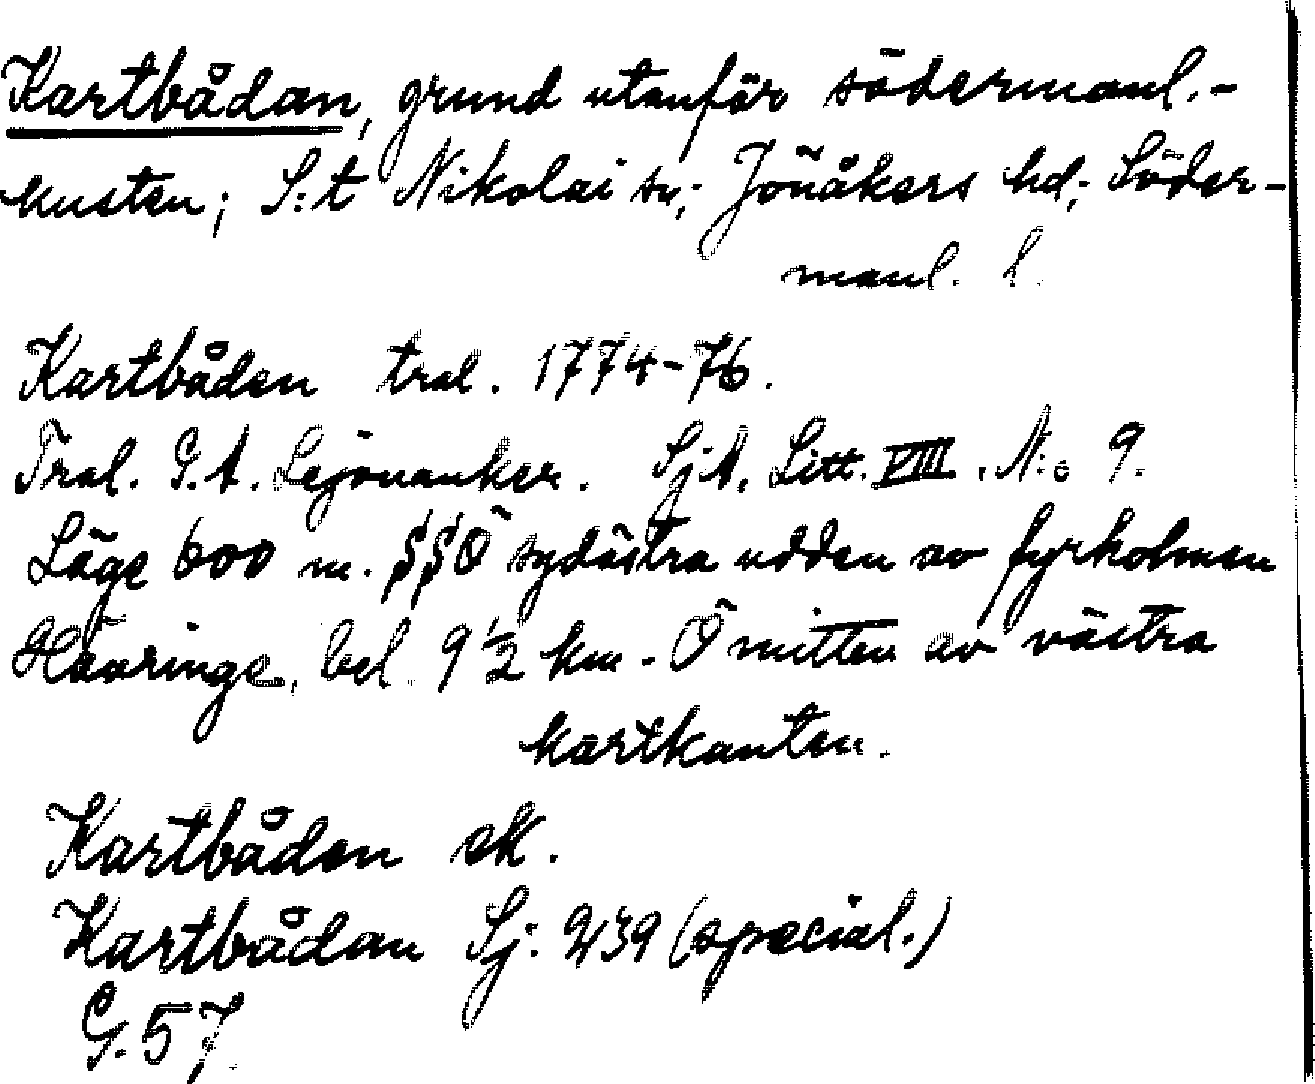 Kartbådan, grund utanför södermanl.-
kusten; S:t Nikolai sn; Jönåkers hd; Söder-
manl. l.
Kartbåden tral. 1774-76.
Tral. G. A. Lejonanker. SjA, Litt. VIII. N:o 9.
Läge 600 m. SSÖ sydöstra udden av fyrholmen
Hävringe, bel. 9 1/2 km. Ö mitten av västra
kartkanten.
Kartbåden ek.
Kartbådan Sj: 239 (special.)
G. 57.